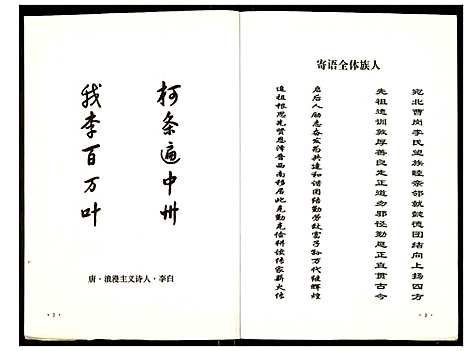 寄语全体族人
宛北曹岗李氏望族睦亲邻就懿德团结向上扬四方
先祖遗训敦厚善良走正道勿邪径勤恳正直贯古今
启后人励志奋发共建和谐团结勤劳致富子孙万代继辉煌
追祖根思先贤恩泽晋西南移居此克勤克俭耕读传家薪火传
柯条遍中州
我李百万叶
唐·浪漫主义诗人·李白